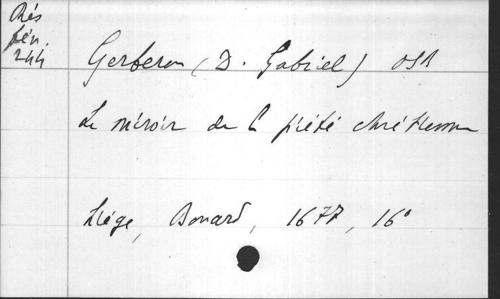 Rés
jén.
244
Gerberon (D. Gabriel) OSB
Le miroir de la piété chrétienne
Liége, Bonard, 1677, 16°